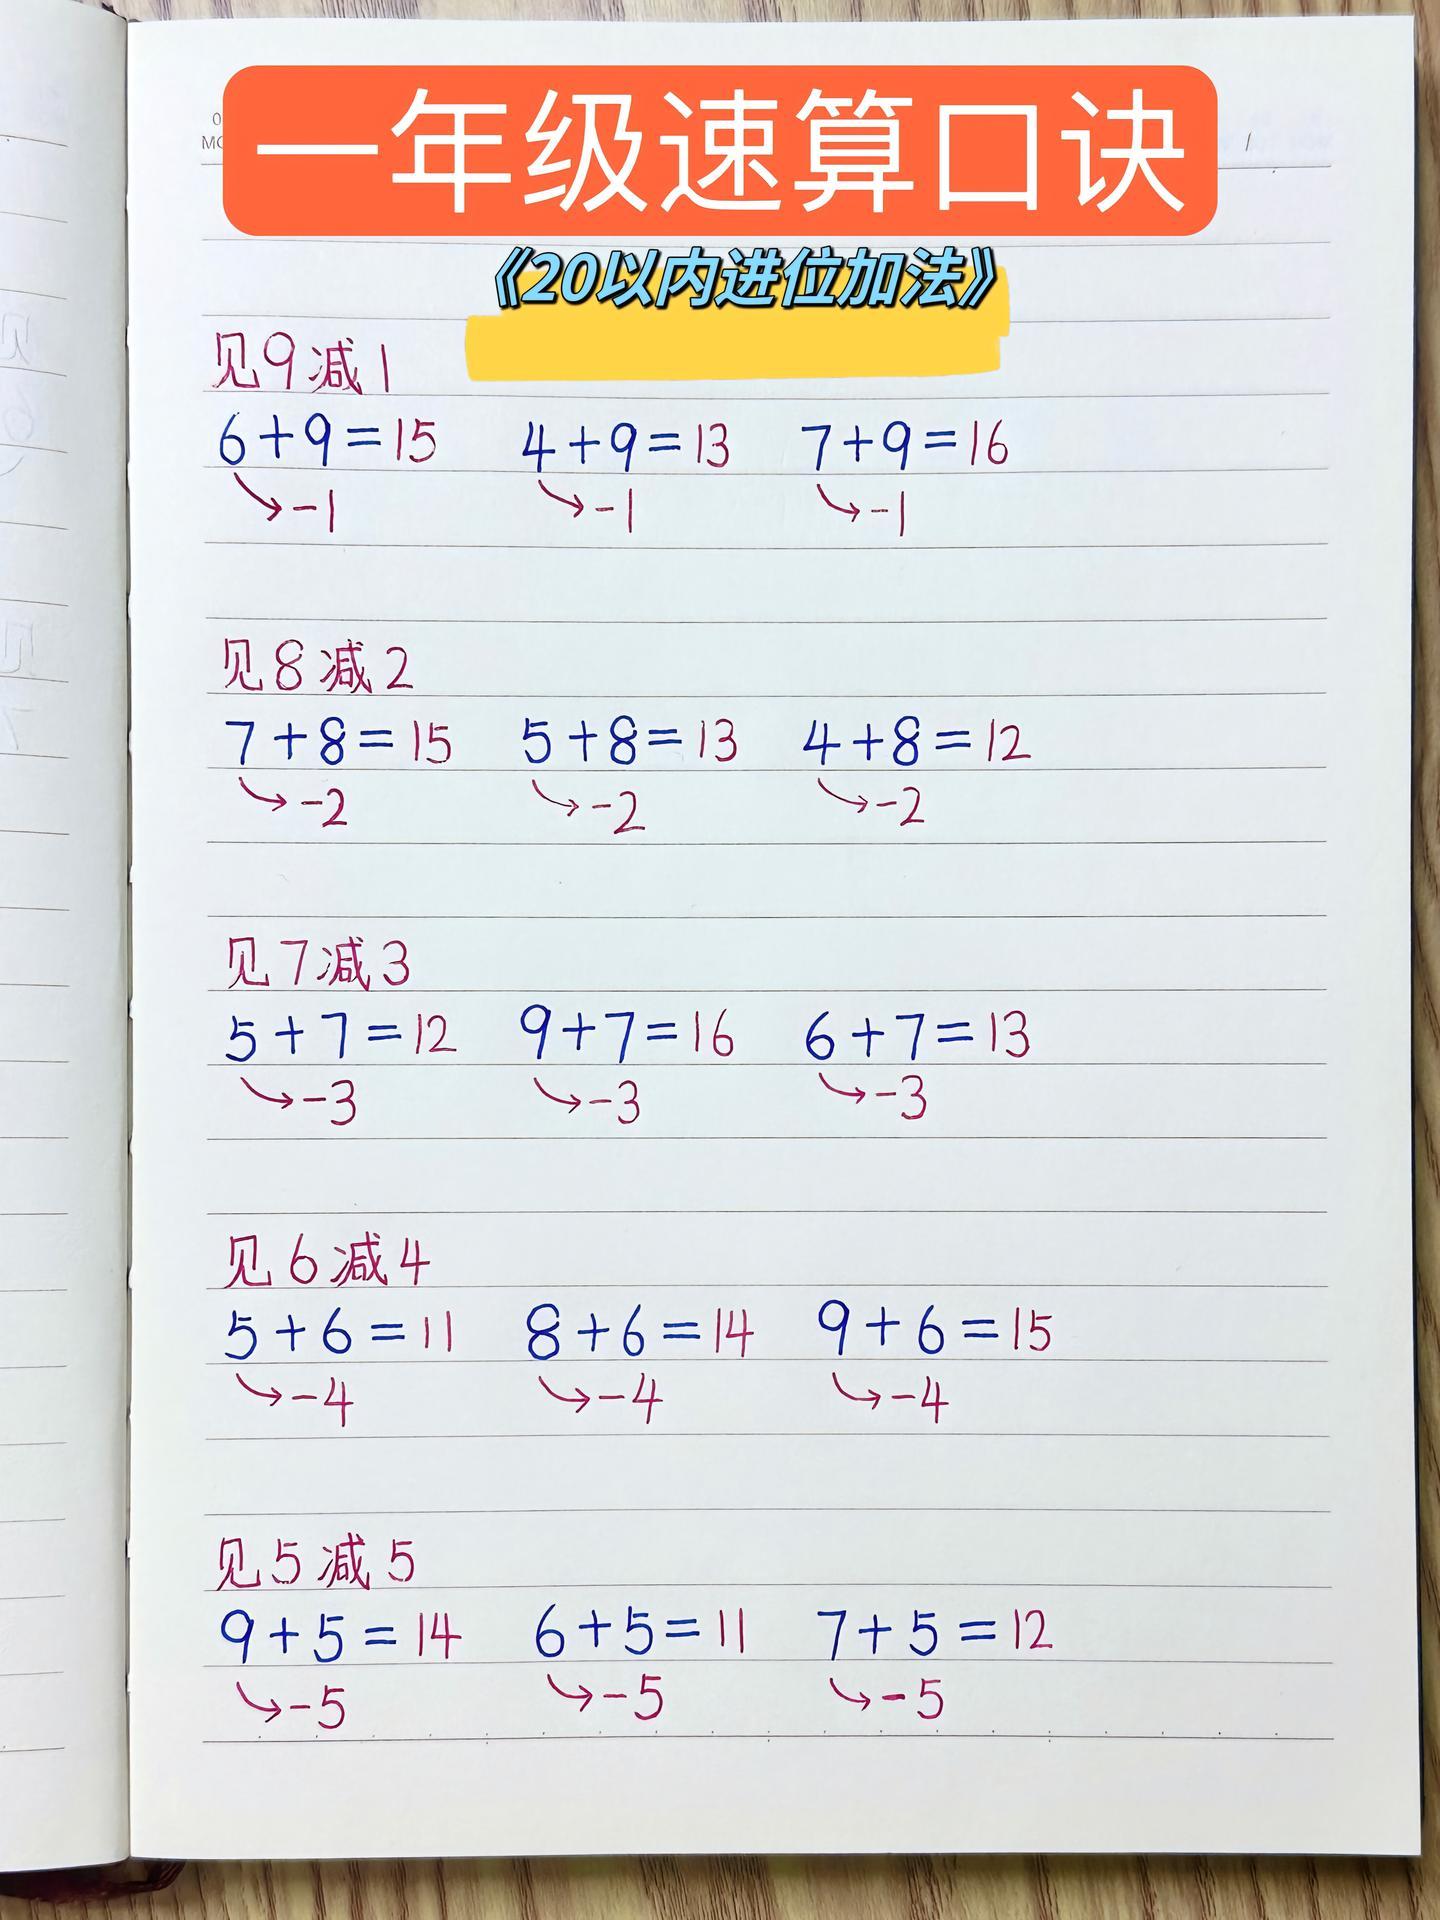 一年级速算口诀
《20以内进位加法》
见9减1
6+9=15 4+9=13 7+9=16
-1 -1 -1
见8减2
7+8=15 5+8=13 4+8=12
-2 -2 -2
见7减3
5+7=12 9+7=16 6+7=13
-3 -3 -3
见6减4
5+6=11 8+6=14 9+6=15
-4 -4 -4
见5减5
9+5=14 6+5=11 7+5=12
-5 -5 -5